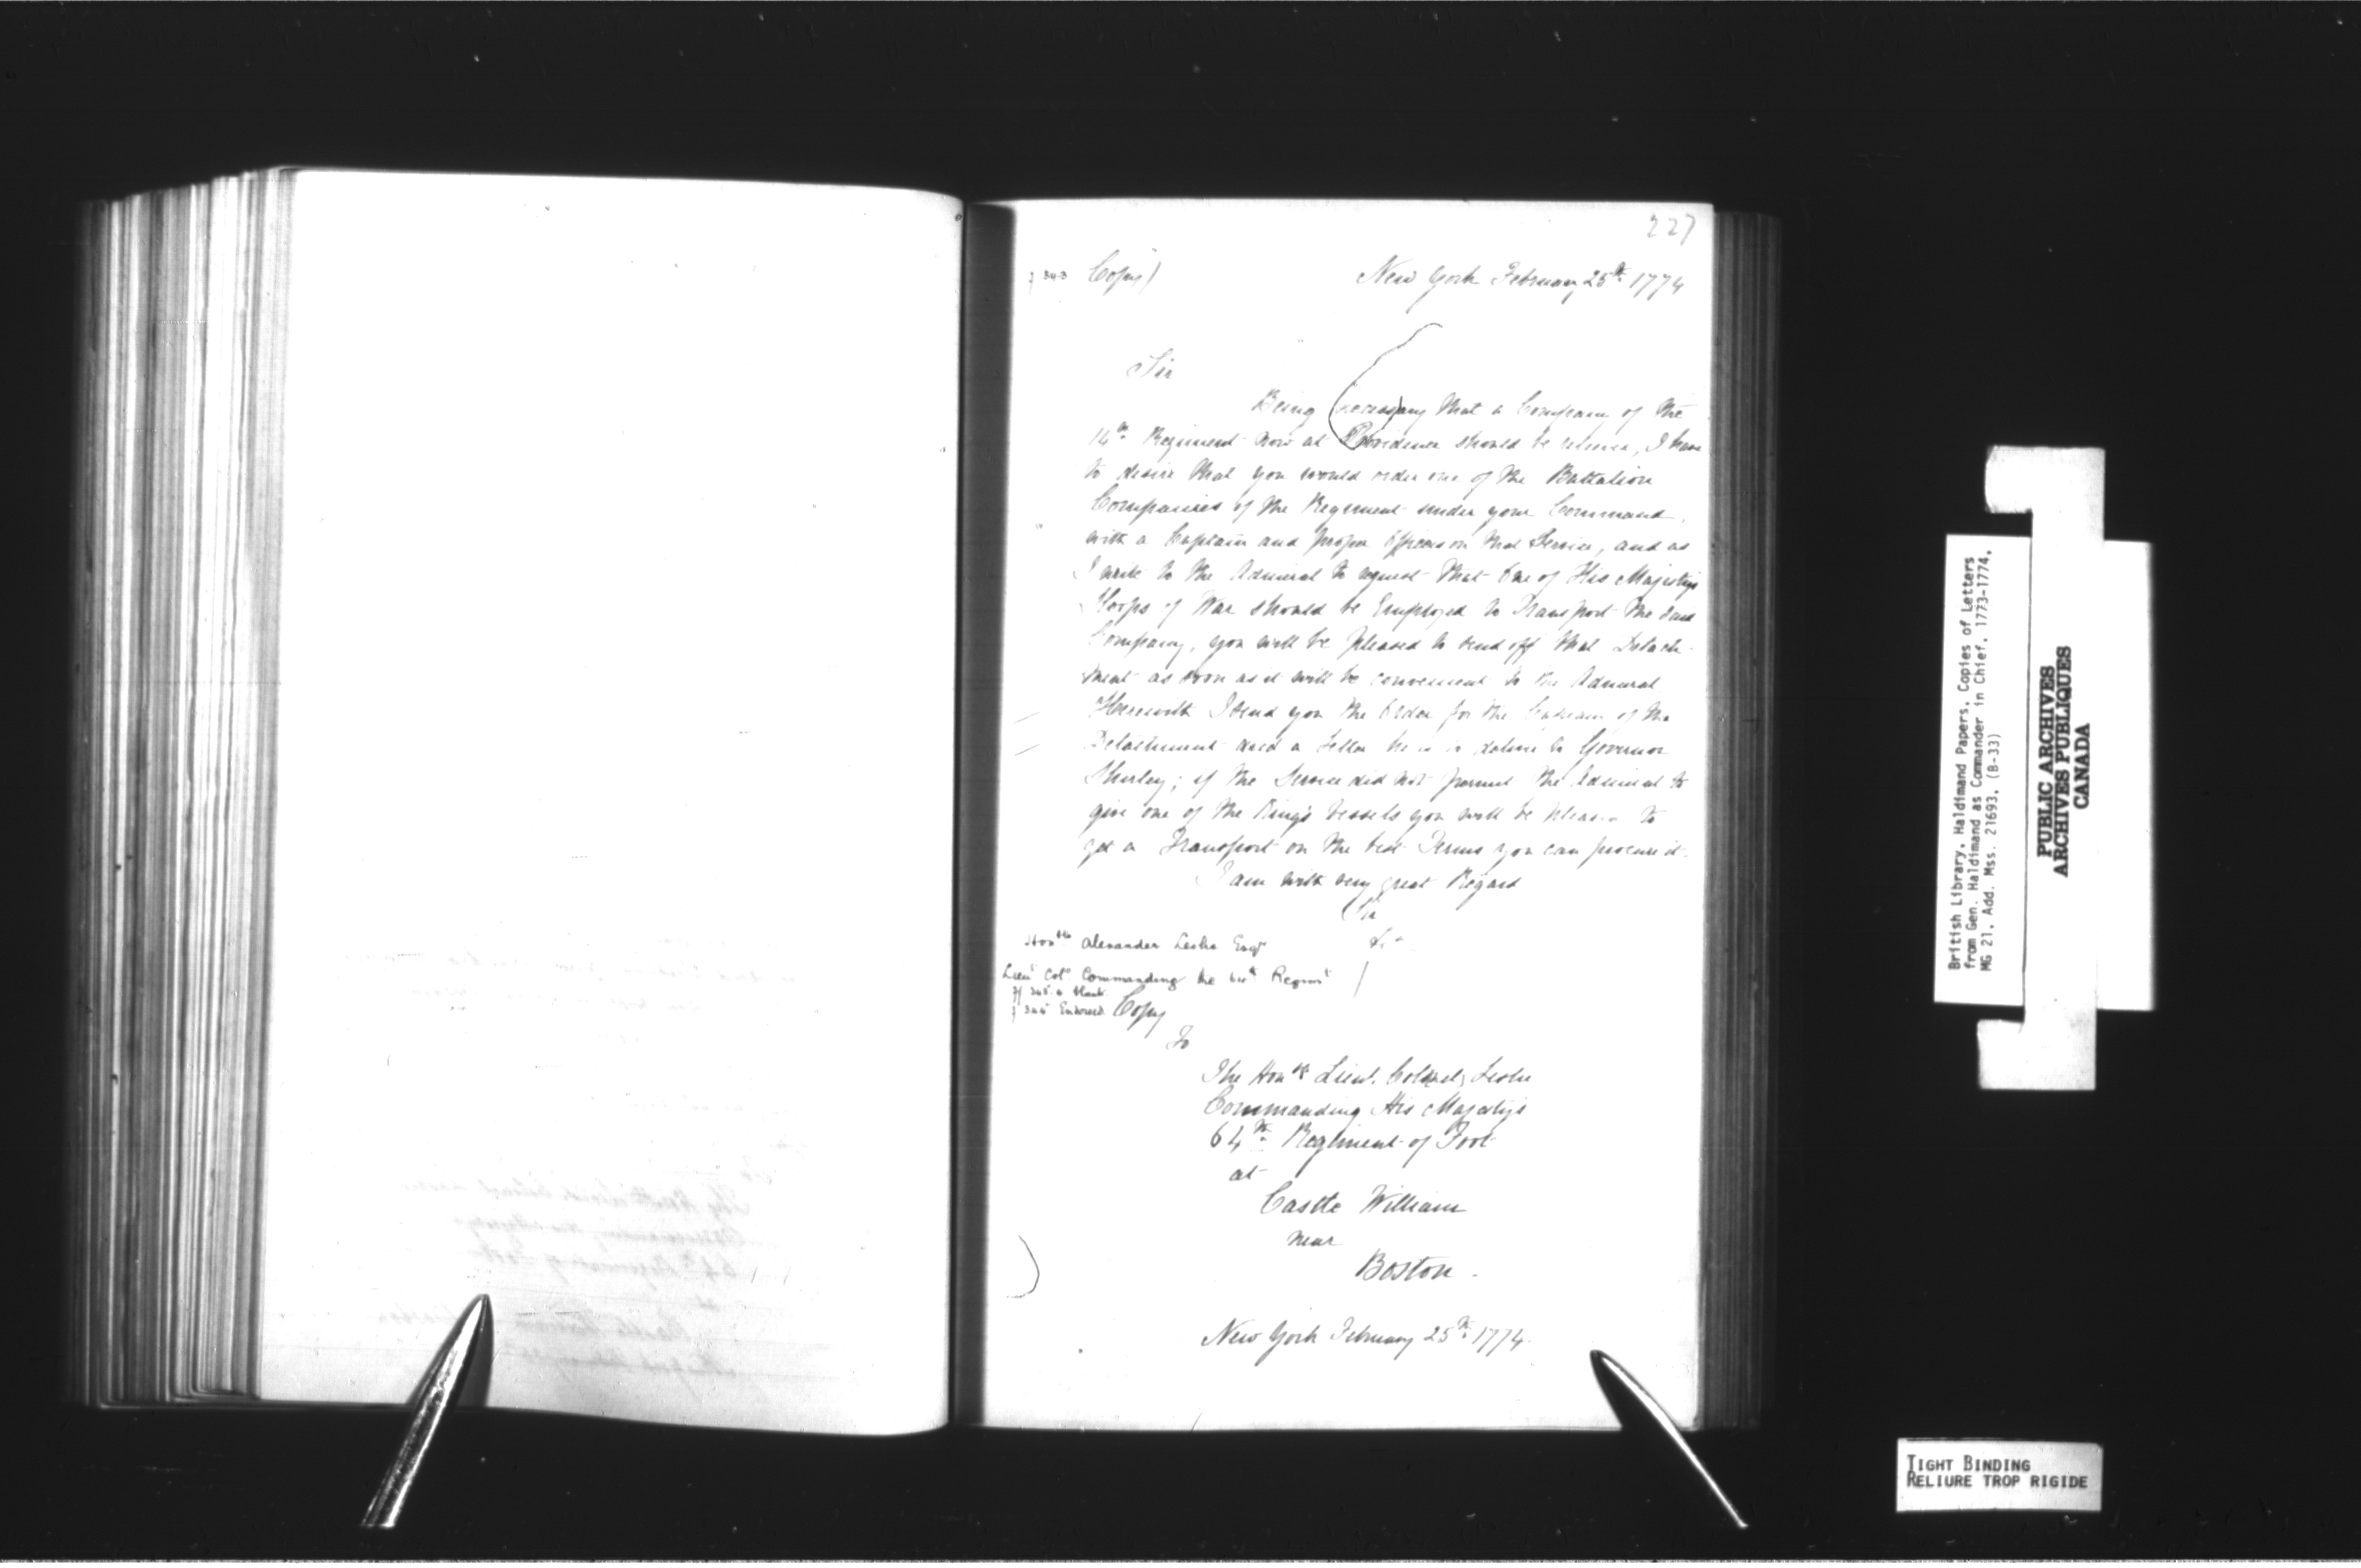 227
f 343 Copy) New York February 25th 1774
Sir
Being necessary that a Company of the
14th Regiment now at Providence should be relieved, I have
to desire that you would order one of the Battalion
Companies of the Regiment under your Command
with a Captain and proper Officers on that Service, and as
I write to the Admiral to request that One of His Majestys
Sloops of War should be Employed to Transport the said
Company, you will be pleased to send off that Detach-
ment as soon as it will be convenient to the Admiral
Herewith I send you the Order for the Captain of the
Detachment and a Letter he is to deliver to Governor
Shirley; if the Service did not permit the Admiral to
give one of the King's Vessels you will be pleased to
get a Transport on the best Terms you can procure it.
I am with very great Regard
Sir
&ca
Honble Alexander Leslie Esqr
Lieut Colo Commanding the 64th Regimt
Blank
Endorsed Copy
To
The Honble Lieut. Colonel Leslie
Commanding His Majesty's
64th Regiment of Foot
at
Castle William
near
Boston.
New York February 25th 1774.
British Library, Haldimand Papers, Copies of Letters
from Gen. Haldimand as Commander in Chief, 1773-1774,
MG 21, Add. Mss. 21693, (B-33)
PUBLIC ARCHIVES
ARCHIVES PUBLIQUES
CANADA
TIGHT BINDING
RELIURE TROP RIGIDE